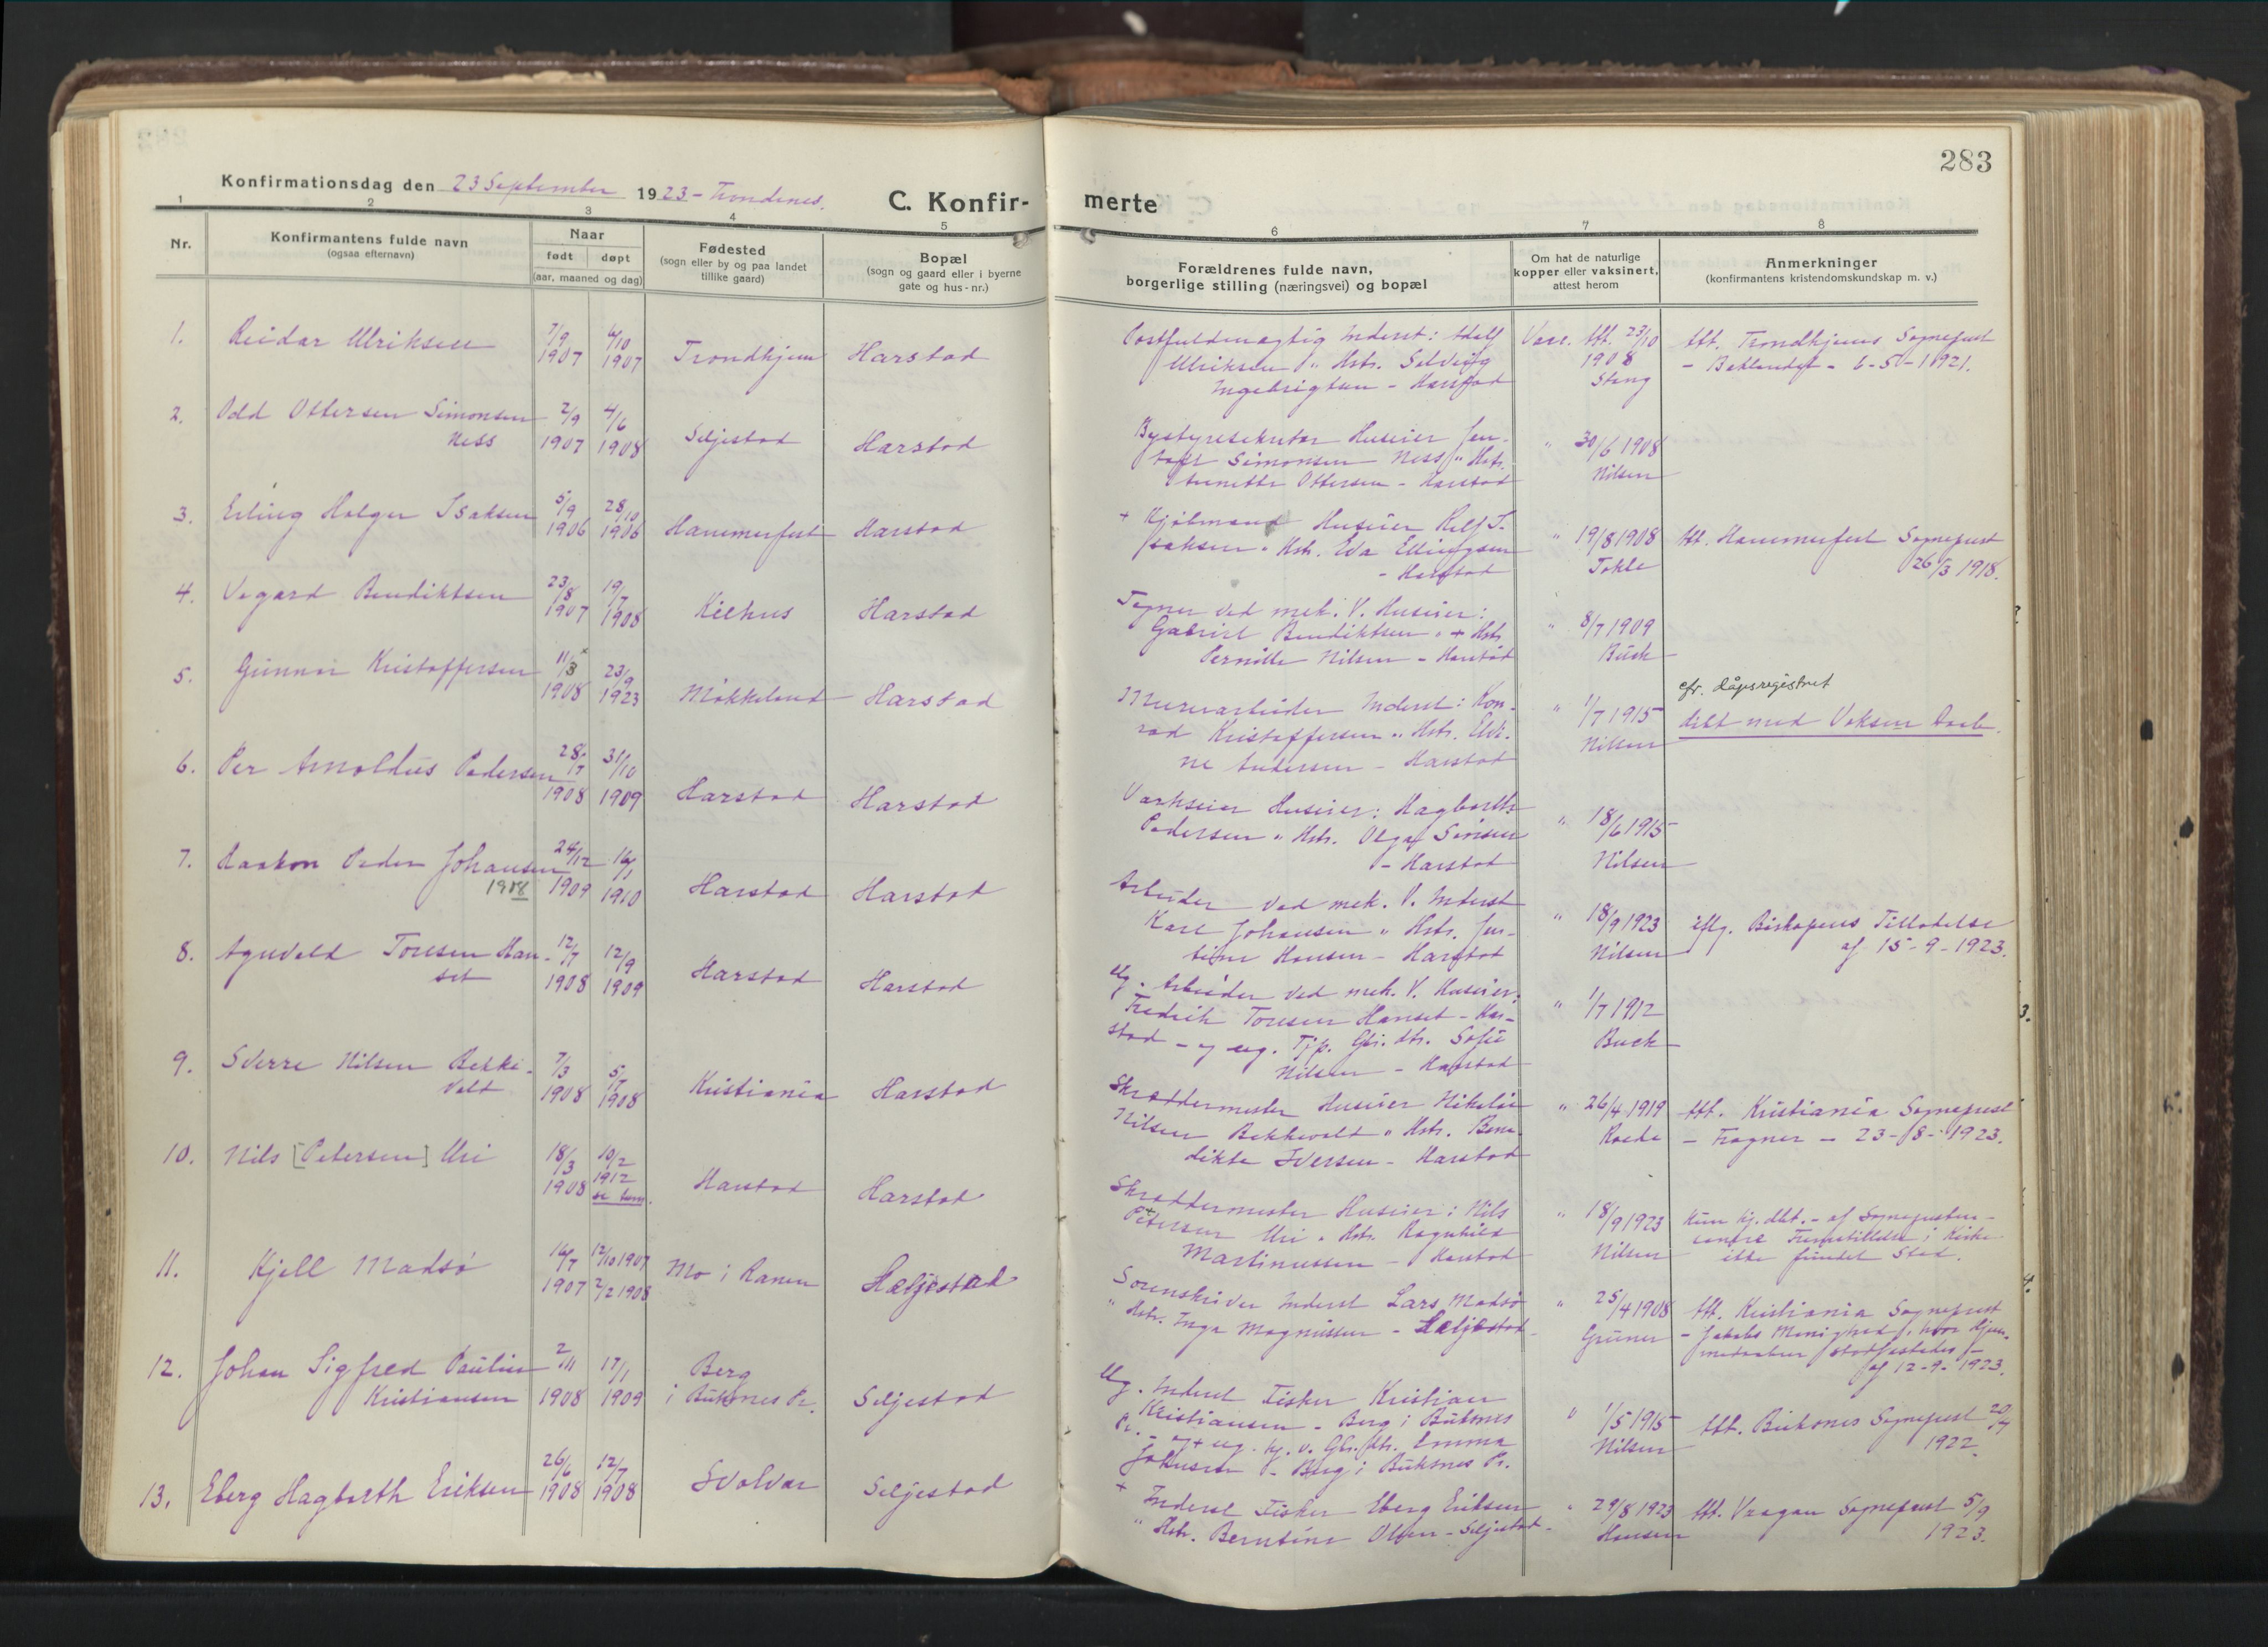 283
Konfirmationsdag den 23 September 1923 - Trondenes.
C. Konfir-
merte
1 2 3 4 5 6 7 8
Nr.
Konfirmantens fulde navn
(ogsaa efternavn)
Naar
født døpt
(aar, maaned og dag)
Fødested
(sogn eller by og paa landet
tillike gaard)
Bopæl
(sogn og gaard eller i byerne
gate og hus-nr.)
Forældrenes fulde navn,
borgerlige stilling (næringsvei) og bopæl
Om hat de naturlige
kopper eller vaksinert,
attest herom
Anmerkninger
(konfirmantens kristendomskundskap m. v.)
1. Reidar Ulriksen 7/9 1907 6/10 1907 Trondhjem Harstad
Postfuldmægtig Inderst: Adolf
Ulriksen " Hstr. Solveig
Ingebrigtsen - Harstad
Vacc. Att. 23/10
1908
Stang
Att. Trondhjems Sogneprest
- Baklandet - 6-5-1921.
2. Odd Ottersen Simonsen
Ness 2/9 1907 4/6 1908 Seljestad Harstad
Bystyresekretær Huseier Jen-
toft Simonsen Ness " Hstr.
Anette Ottersen - Harstad
" 30/6 1908
Nilsen
3. Erling Holger Isaksen 5/9 1906 28/10 1906 Hammerfest Harstad
+ Kjølmand Huseier Rolf I.
Isaksen " Hstr. Eda Ellingsen
- Harstad
" 19/8 1908
Tokle
Att. Hammerfest Sogneprest
26/3 1918.
4. Vegard Bendiktsen 23/8 1907 19/7 1908 Kilhus Harstad
Tegner ved mek. V. Huseier:
Gabriel Bendiktsen " + Hstr.
Pernille Nilsen - Harstad
" 8/7 1909
Buck
5. Gunnar Kristoffersen 11/3 x 1908 23/9 1923 Møkkeland Harstad
Murerarbeider Inderst: Kon-
rad Kristoffersen " Hstr. Elvi-
ne Andersen - Harstad
" 1/7 1915
Nilsen
cfr. dåpsregistret
døbt med Voksen Daab.
6. Per Arnoldus Pedersen 28/7 1908 31/10 1909 Harstad Harstad
Verkseier Huseier: Hagbarth
Pedersen " Hstr. Olga Sørensen
- Harstad
" 18/6 1915
Nilsen
7. Haakon Peder Johansen
1908 24/12 1909 16/1 1910 Harstad Harstad
Arbeider ved mek. V. Inderst
Karl Johansen " Hstr. Jen-
sine Hansen - Harstad
" 18/9 1923
Nilsen
iflg. Biskopens Tilladelse
af 15-9-1923.
8. Agnvald Toresen Han-
set 12/7 1908 12/9 1909 Harstad Harstad
Ug. Arbeider ved mek. V. Huseier:
Fredrik Toresen Hanset - Har-
stad - og ug. Tjp. Gbr. dtr. Sofie
Nilsen - Harstad
" 1/7 1912
Buck
9. Sverre Nilsen Bekke-
vold 7/3 1908 5/7 1908 Kristiania Harstad
Skræddermester Huseier Nikolai
Nilsen Bekkevold " Hstr. Bene-
dikte Iversen - Harstad
" 26/4 1919
Roede
Att. Kristiania Sogneprest
- Frogner - 23-8-1923.
10. Nils [Petersen] Uri 18/3 1908 10/2 1912 se anm. Harstad Harstad
Skræddermester Huseier: Nils
Petersen Uri " Hstr. Ragnhild
Martinussen - Harstad
" 18/9 1923
Nilsen
Kun hj. dbt. - af Sognepresten -
senere Fremstillelse i Kirke
ikke fundet Sted.
11. Kjell Madsø 16/7 1907 12/10 1907 2/2 1908 Mo i Ranen Seljestad
Sorenskriver Inderst Lars Madsø
" Hstr. Inga Magnussen - Seljestad
" 25/4 1908
Grüner
Att. Kristiania Sogneprest
- Jakobs Menighed, hvor hjem-
medaaben stadfæstedes -
af 12-9-1923.
12. Johan Sigfred Paulin
Kristiansen 2/11 1908 17/1 1909 Berg
i Buksnes Pr. Seljestad
Ug. Inderst Fisker Kristian
Kristiansen - Berg i Buksnes
Pr. - og + ug. hj. v. Gbr. dtr. Emma
Johnsen - Berg i Buksnes Pr.
" 1/5 1915
Nilsen
Att. Buksnes Sogneprest 20/7
1922
13. Eberg Hagbarth Eriksen 26/6 1908 12/7 1908 Svolvær Seljestad
+ Inderst Fisker Eberg Eriksen
" Hstr. Berntine Olsen - Seljestad -
" 29/8 1923
Hansen
Att. Vaagan Sogneprest 5/9
1923.